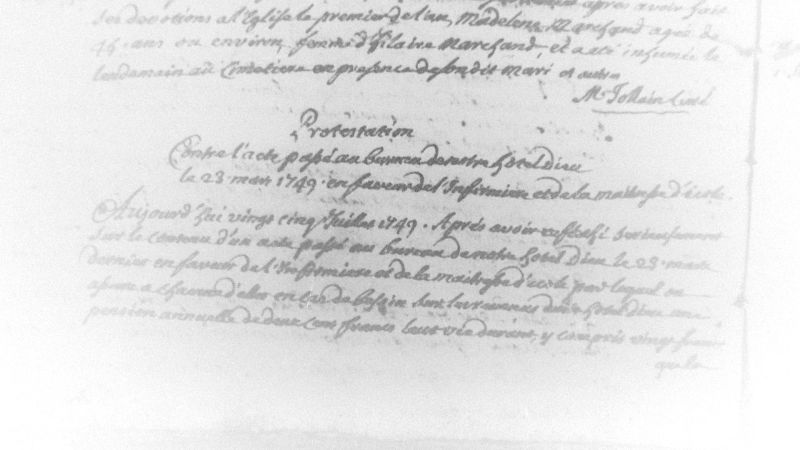 après avoir fait
ses devotions a l'Eglise le premier de l'an, Madeleine Marchand agée de
46 ans ou environ femme d'hilaire Marchand, et a été inhumée le
lendemain au Cimetiere en presence de son dit Mari et autres
M. Jollain Curé
Protestation
Contre l'acte passé au bureau de notre hôtel Dieu
le 23 mars 1749 en faveur de l'Infirmiere et de la maitresse d'école.
Aujourd'hui vingt cinq Juillet 1749. Aprés avoir refléchi serieusement
sur le contenu d'un acte passé au bureau de notre hôtel Dieu le 23 mars
dernier en faveur de l'Infirmiere et de la maitresse d'école par lequel on
assure a chacune d'elles en cas de besoin sur les revenus dud. hôtel dieu une
pension annuelle de deux cent francs leur vie durant, y compris vingt francs
que la